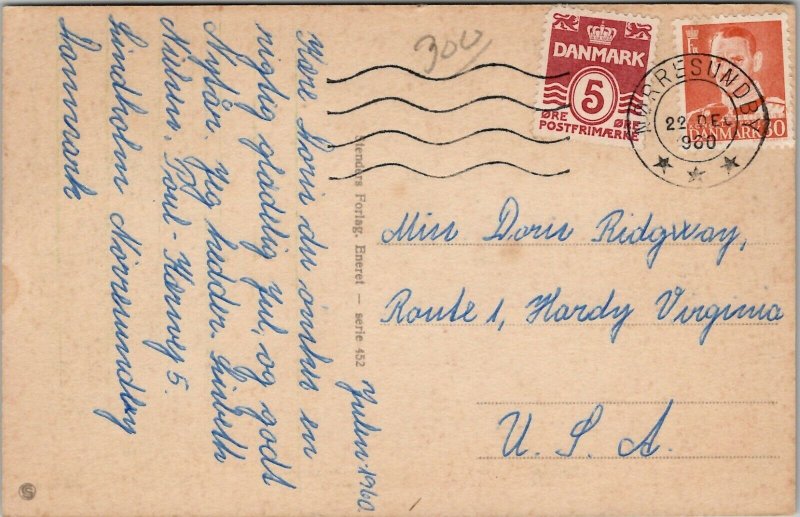 300
DANMARK
5
ØRE ØRE
POSTFRIMÆRKE
DANMARK 30
NØRRESUNDBY
22 DEC
1960
Julen 1960.
Kære Doris du ønskes en
rigtig glædelig jul, og godt
Nytår. Jeg hedder Lisbeth
Nielsen. Poul-Kærvej 5.
Lindholm Nörresundby
Danmark
Stenders Forlag. Eneret — serie 452
Miss Doris Ridgway,
Route 1, Hardy Virginia
U. S. A.